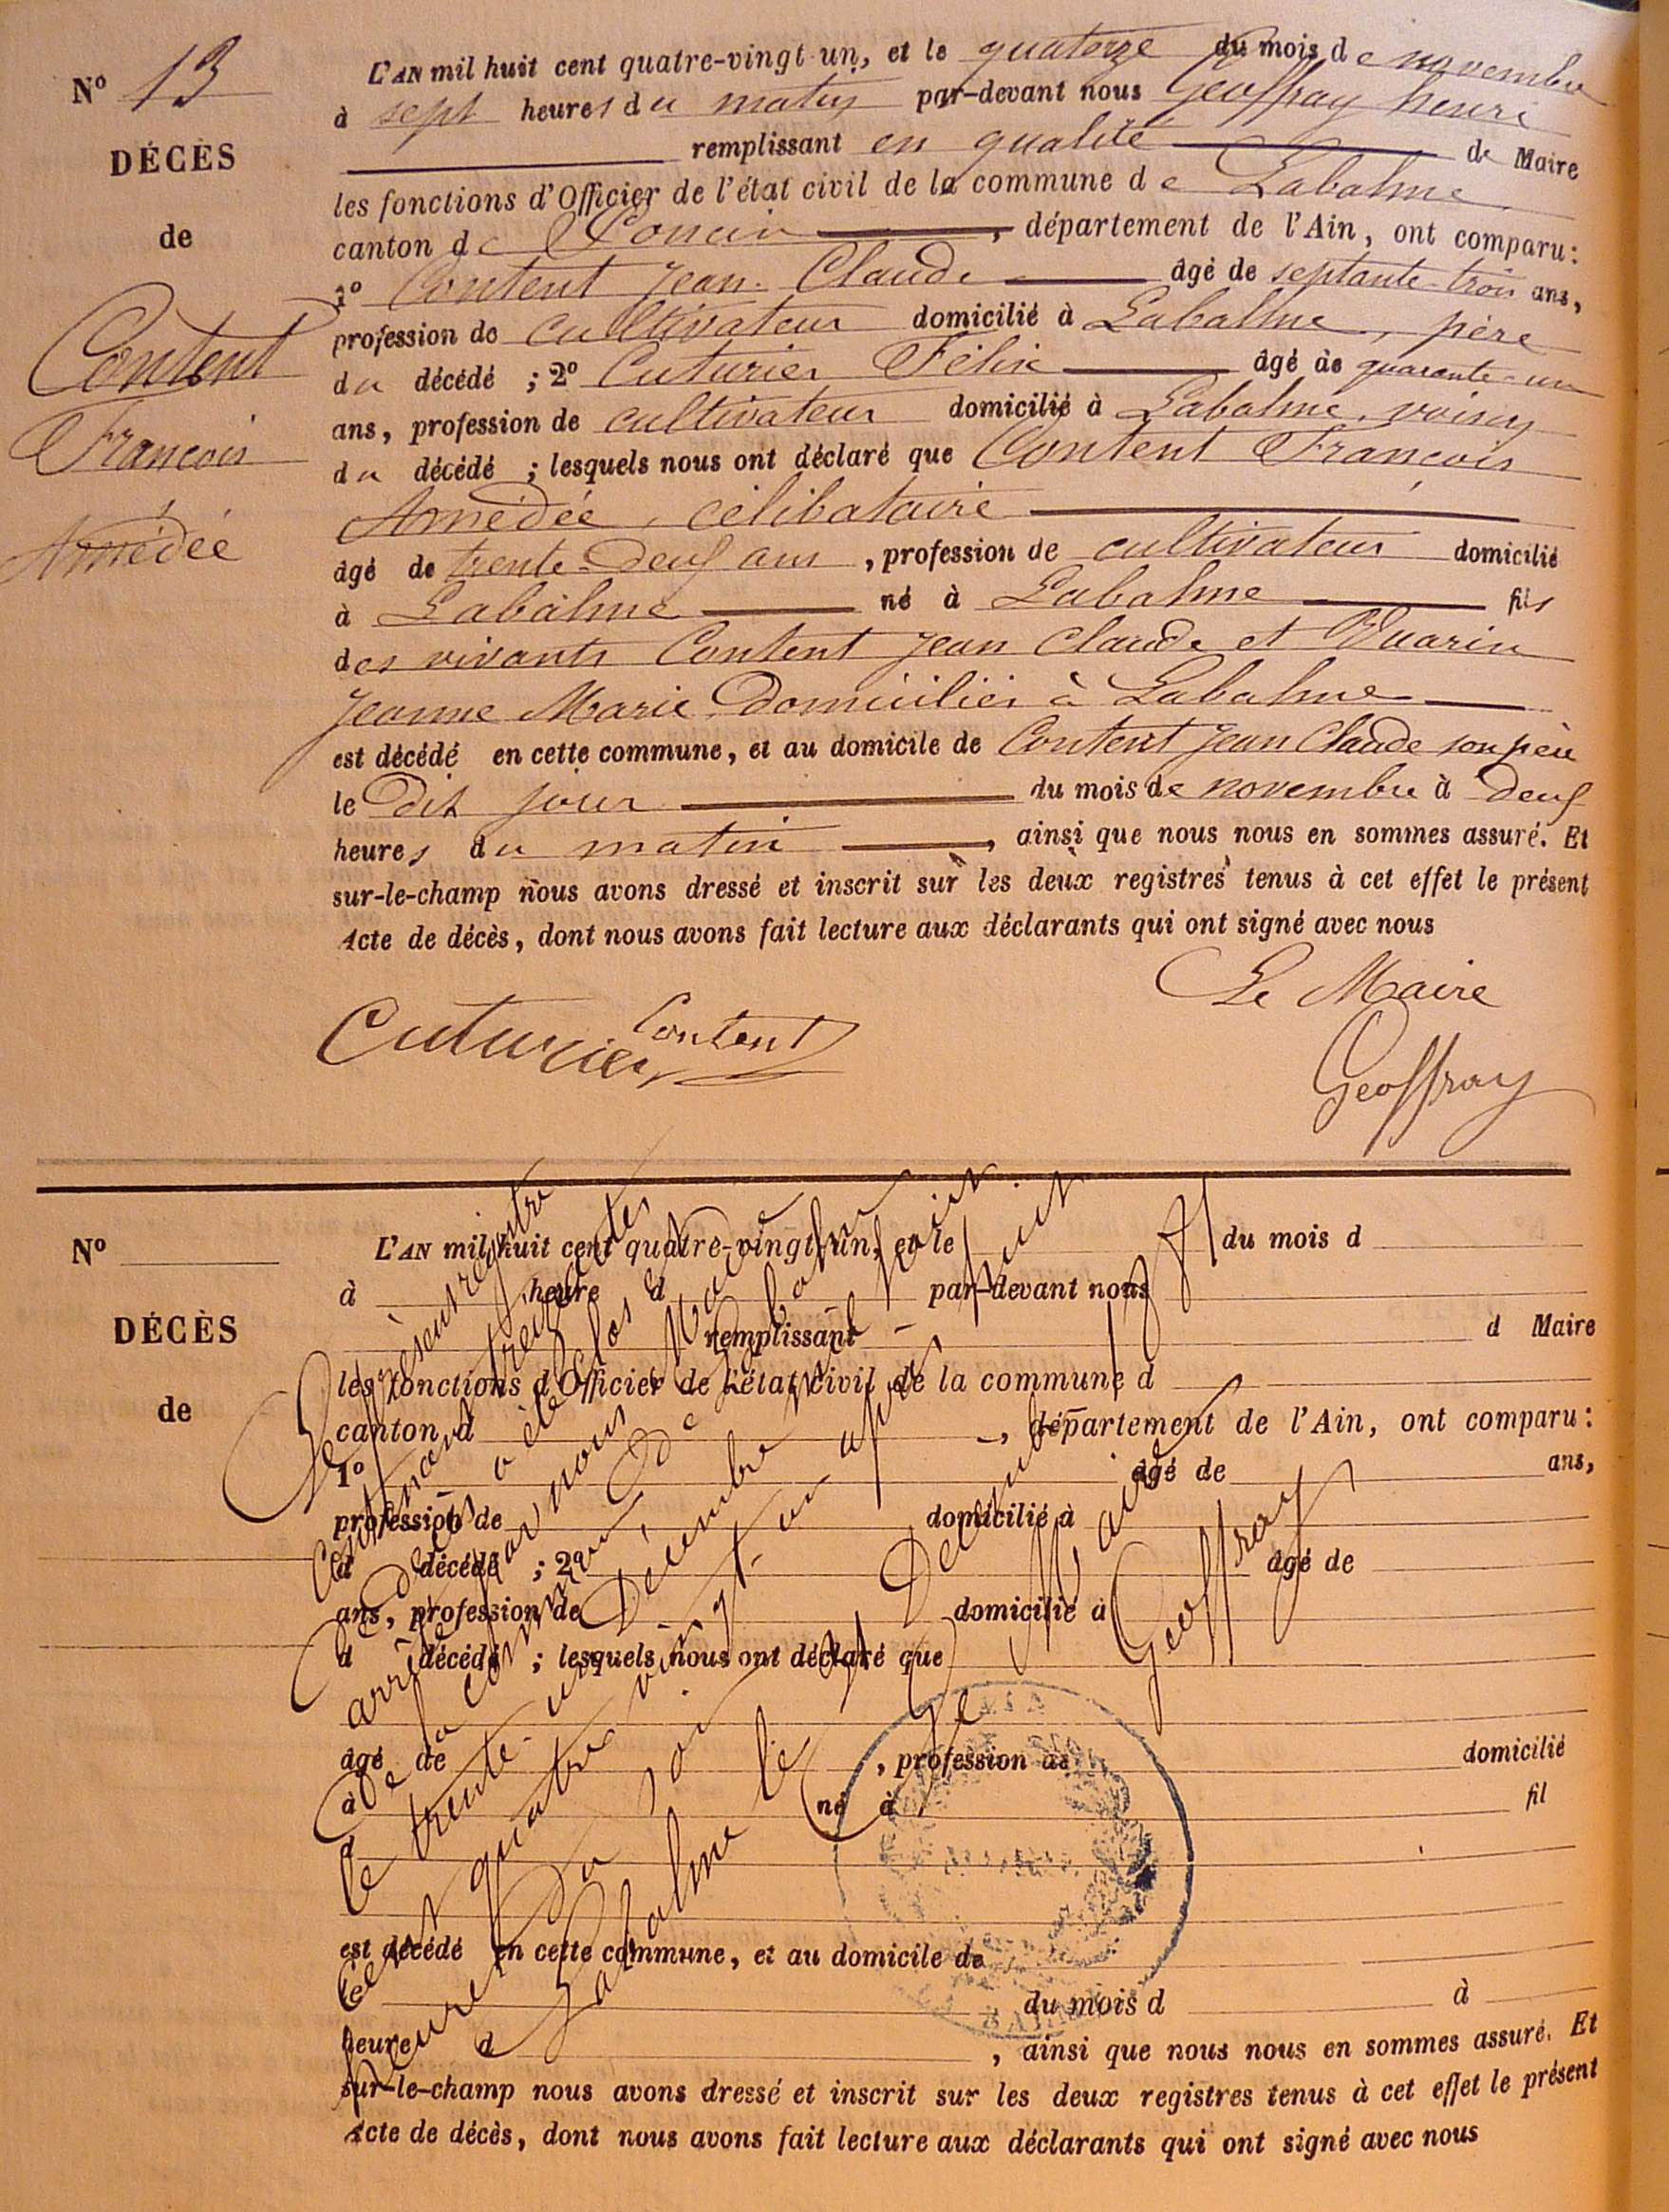 N° 13
DÉCÈS
de
Content
François
Amédée
L'AN mil huit cent quatre-vingt-un, et le quatorze du mois de novembre
à sept heures du matin par-devant nous Geoffray henri
remplissant en qualité de Maire
les fonctions d'Officier de l'état civil de la commune de Labalme
canton de Poncin, département de l'Ain, ont comparu:
1° Content Jean Claude âgé de septante-trois ans,
profession de cultivateur domicilié à Labalme, père
du décédé ; 2° Cuturier Félix âgé de quarante-un
ans, profession de cultivateur domicilié à Labalme, voisin
du décédé ; lesquels nous ont déclaré que Content François
Amédée, célibataire
âgé de trente-deux ans, profession de cultivateur domicilié
à Labalme né à Labalme fils
des vivants Content Jean Claude et
Jeanne Marie domiciliés à Labalme
est décédé en cette commune, et au domicile de Content Jean Claude son père
le dit jour du mois de novembre à deux
heures du matin, ainsi que nous nous en sommes assuré. Et
sur-le-champ nous avons dressé et inscrit sur les deux registres tenus à cet effet le présent
Acte de décès, dont nous avons fait lecture aux déclarants qui ont signé avec nous
Le Maire
Content
Cuturier
Geoffray
N°
DÉCÈS
de
L'AN mil huit cent quatre-vingt-un, et le du mois d
à heure d par-devant nous
remplissant d Maire
les fonctions d'Officier de l'état civil de la commune d
canton d , département de l'Ain, ont comparu:
1° âgé de ans,
profession de domicilié à
d décédé ; 2° âgé de
ans, profession de domicilié à
d décédé ; lesquels nous ont déclaré que
âgé de , profession de domicilié
à né à fil
est décédé en cette commune, et au domicile de
le du mois d à
heure d , ainsi que nous nous en sommes assuré. Et
sur-le-champ nous avons dressé et inscrit sur les deux registres tenus à cet effet le présent
Acte de décès, dont nous avons fait lecture aux déclarants qui ont signé avec nous
Le présent registre
contenant treize actes
de Décès a été clos et
arrêté par nous Maire
de la commune de Labalme
le trente-un Décembre mil huit
cent quatre vingt-un après
heures du soir
Labalme le 31 Décembre
Le Maire
Geoffray